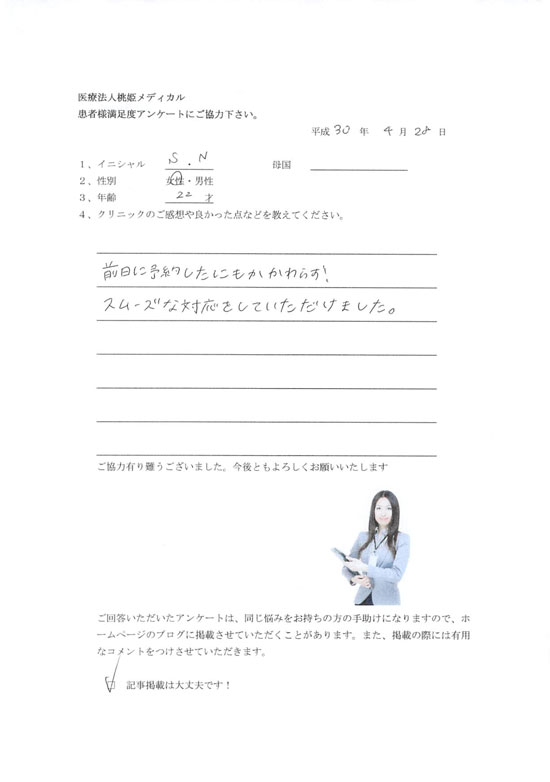 医療法人桃姫メディカル
患者様満足度アンケートにご協力下さい。
平成 30 年 4 月 28 日
1、イニシャル S . N 母国
2、性別 女性・男性
3、年齢 22 才
4、クリニックのご感想や良かった点などを教えてください。
前日に予約したにもかかわらず!
スムーズな対応をしていただけました。
ご協力有り難うございました。今後ともよろしくお願いいたします
ご回答いただいたアンケートは、同じ悩みをお持ちの方の手助けになりますので、ホ
ームページのブログに掲載させていただくことがあります。また、掲載の際には有用
なコメントをつけさせていただきます。
□ 記事掲載は大丈夫です！